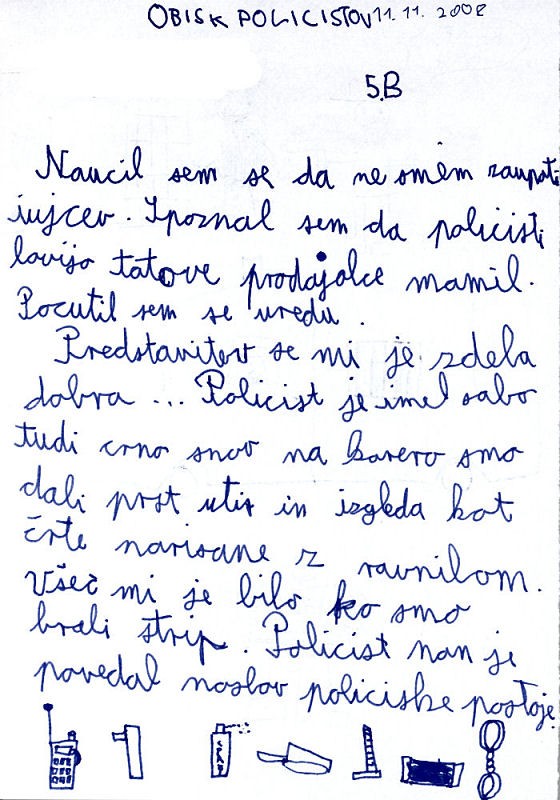 OBISK POLICISTOV 11. 11. 2008
5.B
Naucil sem se da ne smem zaupati
tujcev. Spoznal sem da policisti
lovijo tatove prodajalce mamil.
Pocutil sem se uredu.
Predstavitev se mi je zdela
dobra ... Policist je imel sabo
tudi crno snov na katero smo
dali prst utis in izgleda kot
črte narisane z ravnilom.
Všeč mi je bilo ko smo
brali strip. Policist nan je
povedal naslov policiske postoje